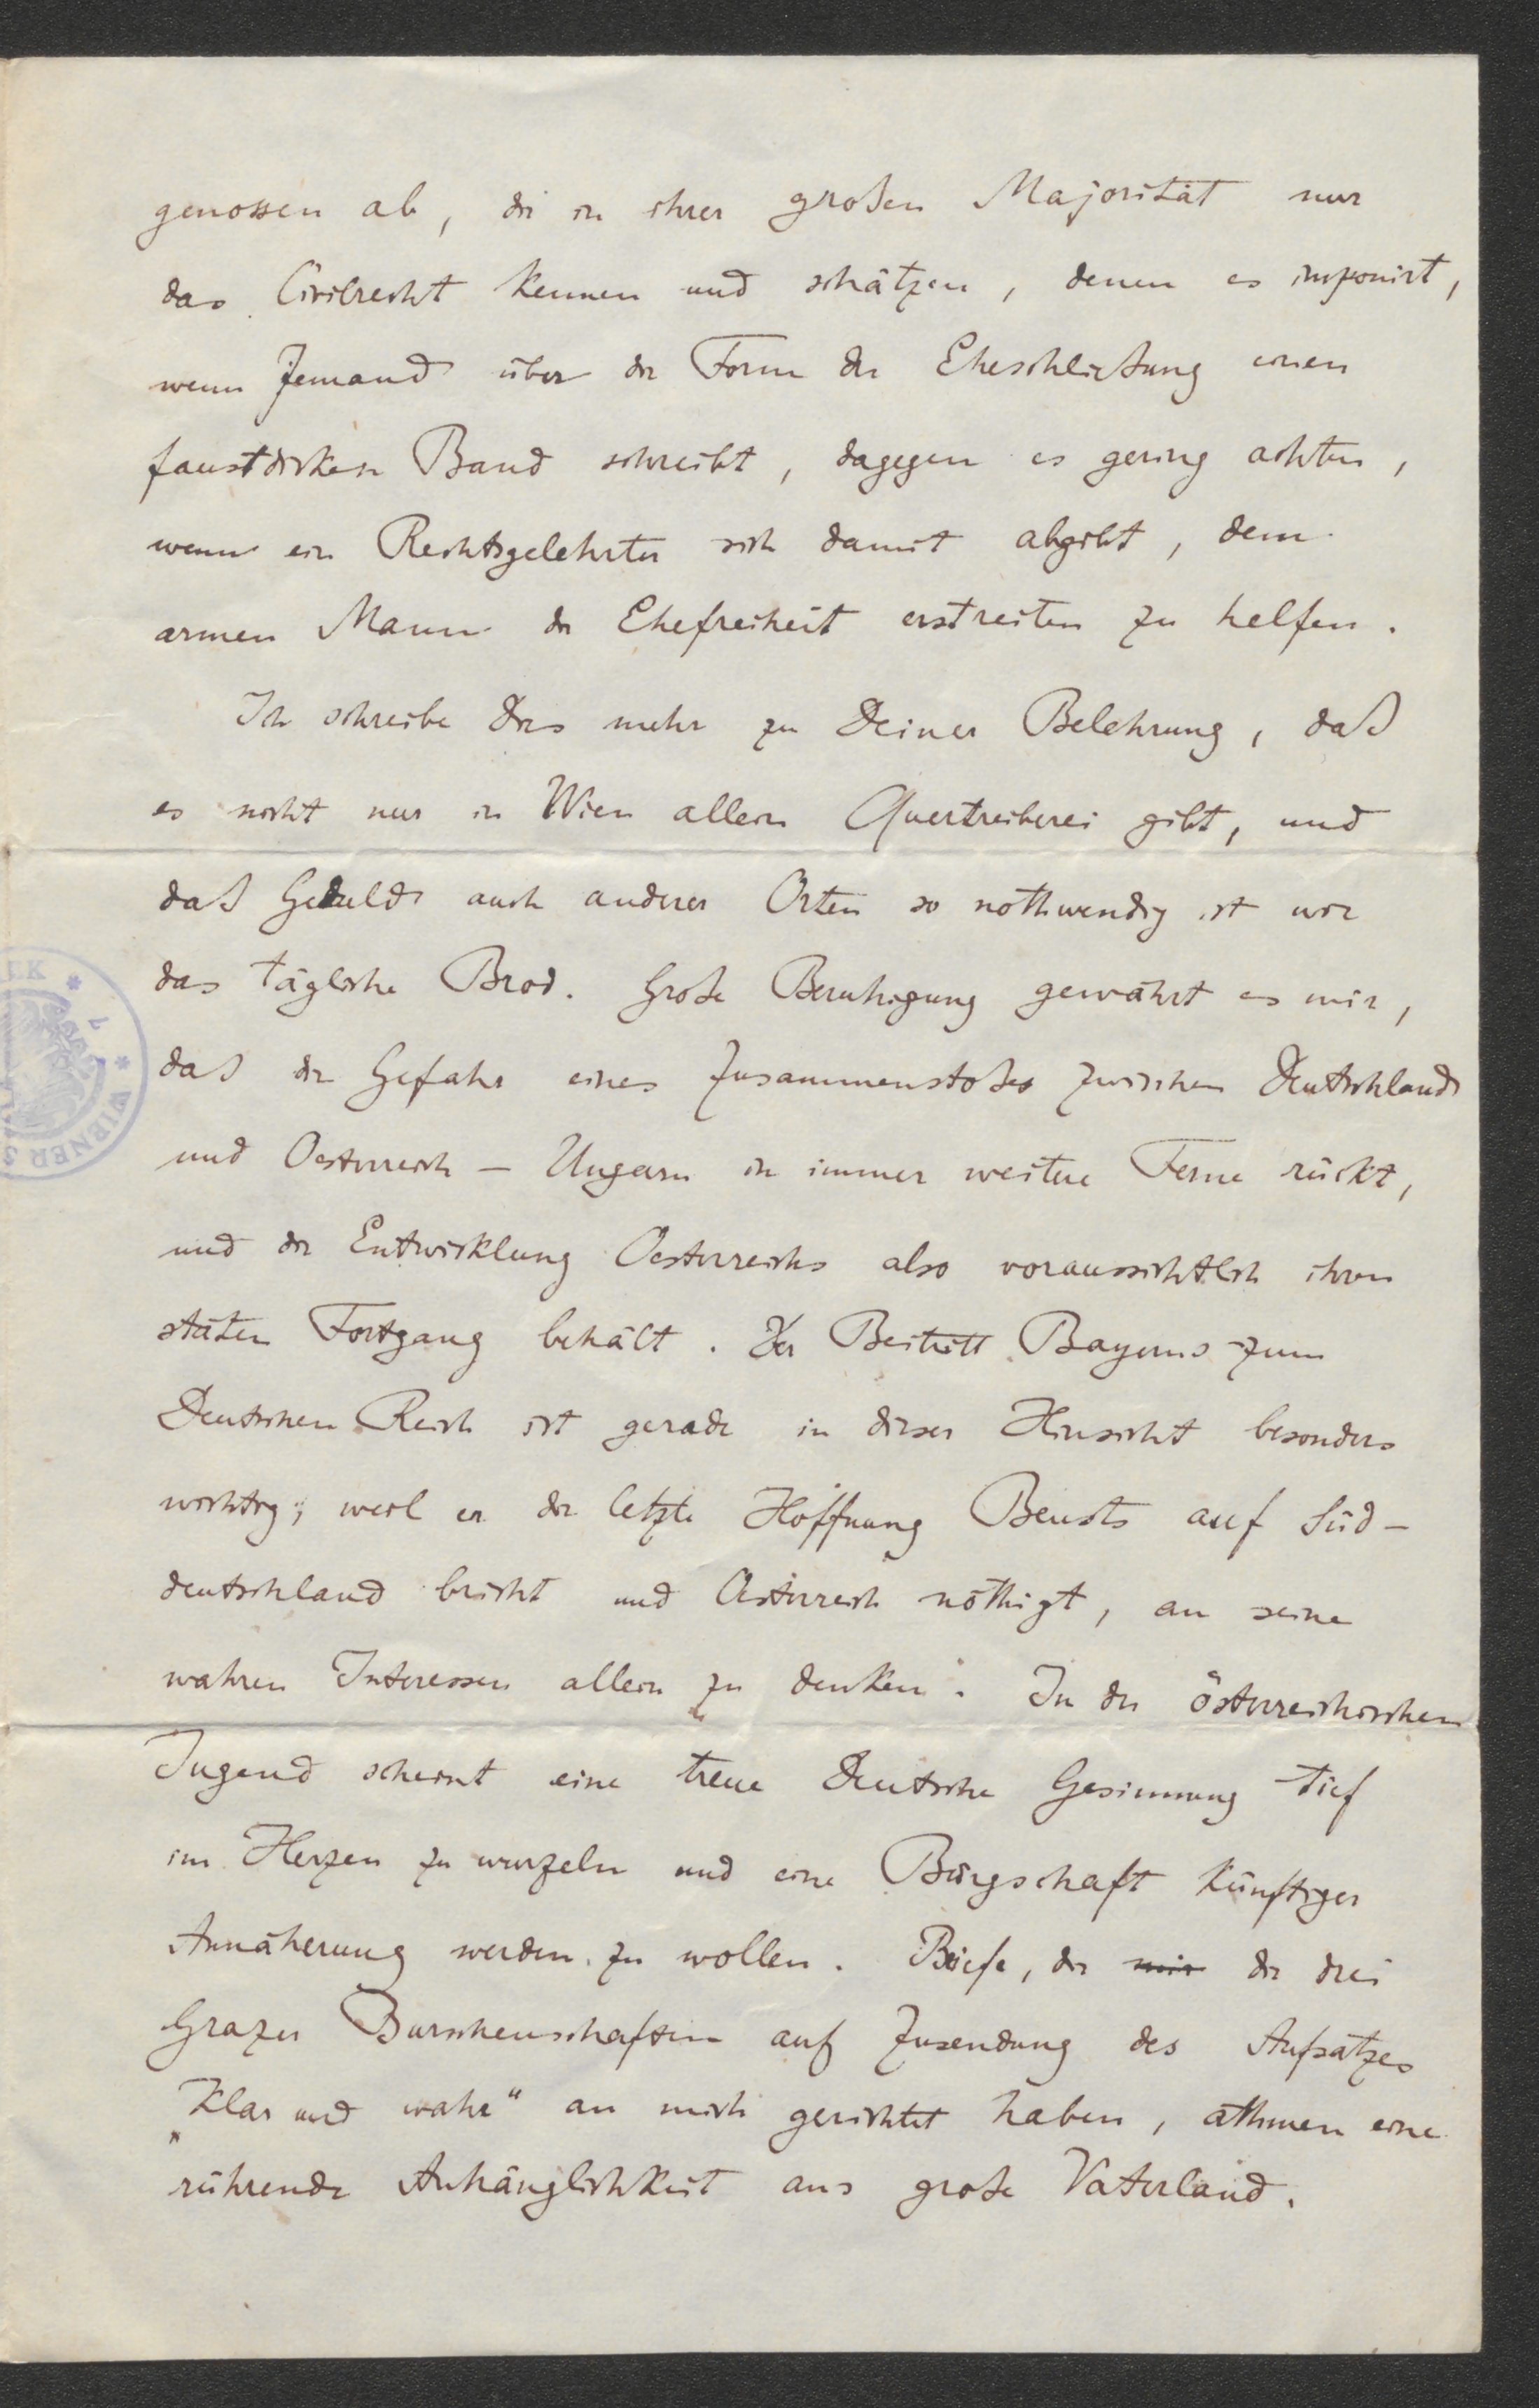 genossen ab, die in ihrer großen Majorität nur
das Civilrecht kennen und schätzen, denen es imponirt,
wenn Jemand über die Form der Eheschließung einen
faustdicken Band schreibt, dagegen es gering achten,
wenn ein Rechtsgelehrter sich damit abgibt, dem
armen Mann die Ehefreiheit erstreiten zu helfen.
Ich schreibe dies mehr zu Deiner Belehrung, daß
es nicht nur in Wien allein Quertreiberei gibt, und
daß Geduld auch anderer Orten so nothwendig ist wie
das tägliche Brod. Große Beruhigung gewährt es mir,
daß die Gefahr eines Zusammenstoßes zwischen Deutschland
und Oesterreich - Ungarn in immer weitere Ferne rückt,
und die Entwicklung Oesterreichs also voraussichtlich ihren
stäten Fortgang behält. Der Beitritt Bayerns zum
Deutschen Reich ist gerade in dieser Hinsicht besonders
wichtig, weil er die letzte Hoffnung Beusts auf Süd-
deutschland bricht und Oesterreich nöthigt, an seine
wahren Interessen allein zu denken. In der österreichischen
Jugend scheint eine treue Deutsche Gesinnung tief
im Herzen zu wurzeln und eine Bürgschaft künftiger
Annäherung werden zu wollen. Briefe, die mir die drei
Grazer Burschenschaften auf Zusendung des Aufsatzes
„Klar und wahr“ an mich gerichtet haben, athmen eine
rührende Anhänglichkeit ans große Vaterland.
EK * L * WIENER S